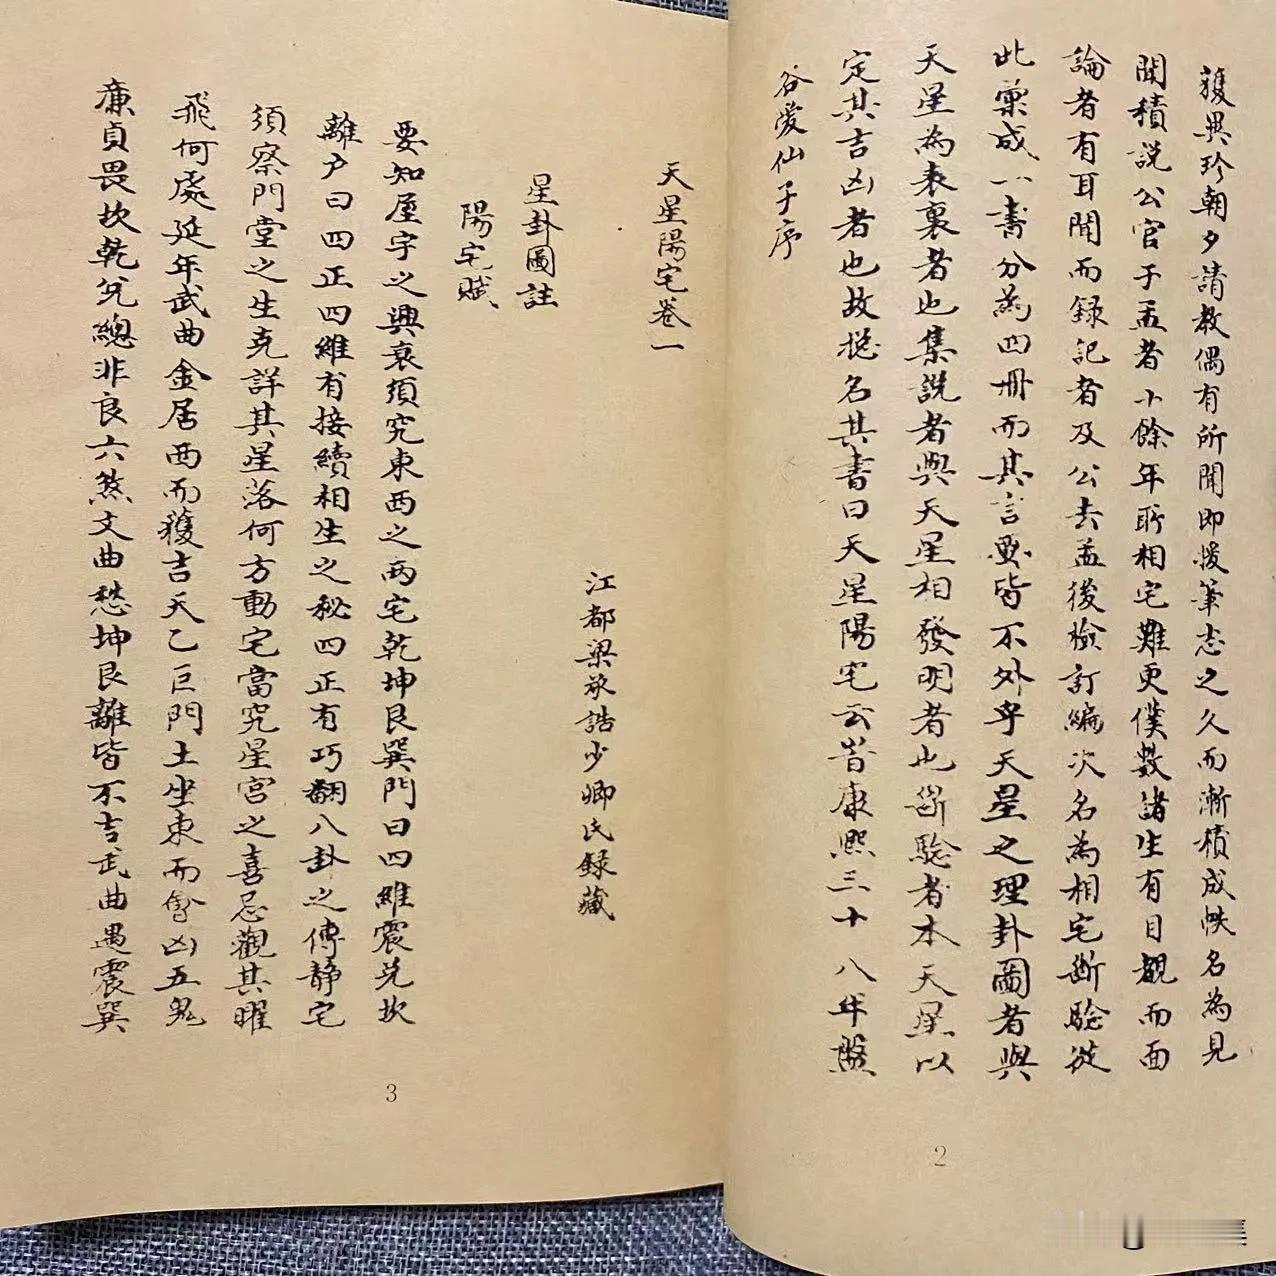 獲異珍朝夕請教偶有所聞即援筆志之久而漸積成帙名為見
聞積説公官于孟者十餘年所相宅難更僕數諸生有目覩而面
論者有耳聞而録記者及公去孟後檢訂編次名為相宅断驗從
此彙成一書分為四冊而其言要皆不外乎天星之理卦圖者與
天星為表裏者也集説者與天星相發明者也断驗者本天星以
定其吉凶者也故揔名其書曰天星陽宅云昔康熙三十八年盤
谷愛仙子序
2
天星陽宅卷一
江都梁欽誥少卿氏録藏
星卦圖註
陽宅賦
要知屋宇之興衰須究東西之兩宅乾坤艮巽門曰四維震兑坎
離户曰四正四維有接續相生之秘四正有巧翻八卦之傳静宅
須察門堂之生克詳其星落何方動宅當究星宮之喜忌觀其曜
飛何處延年武曲金居西而獲吉天乙巨門土坐東而奪凶五鬼
廉貞畏坎乾兑總非良六煞文曲愁坤艮離皆不吉武曲遇震巽
3